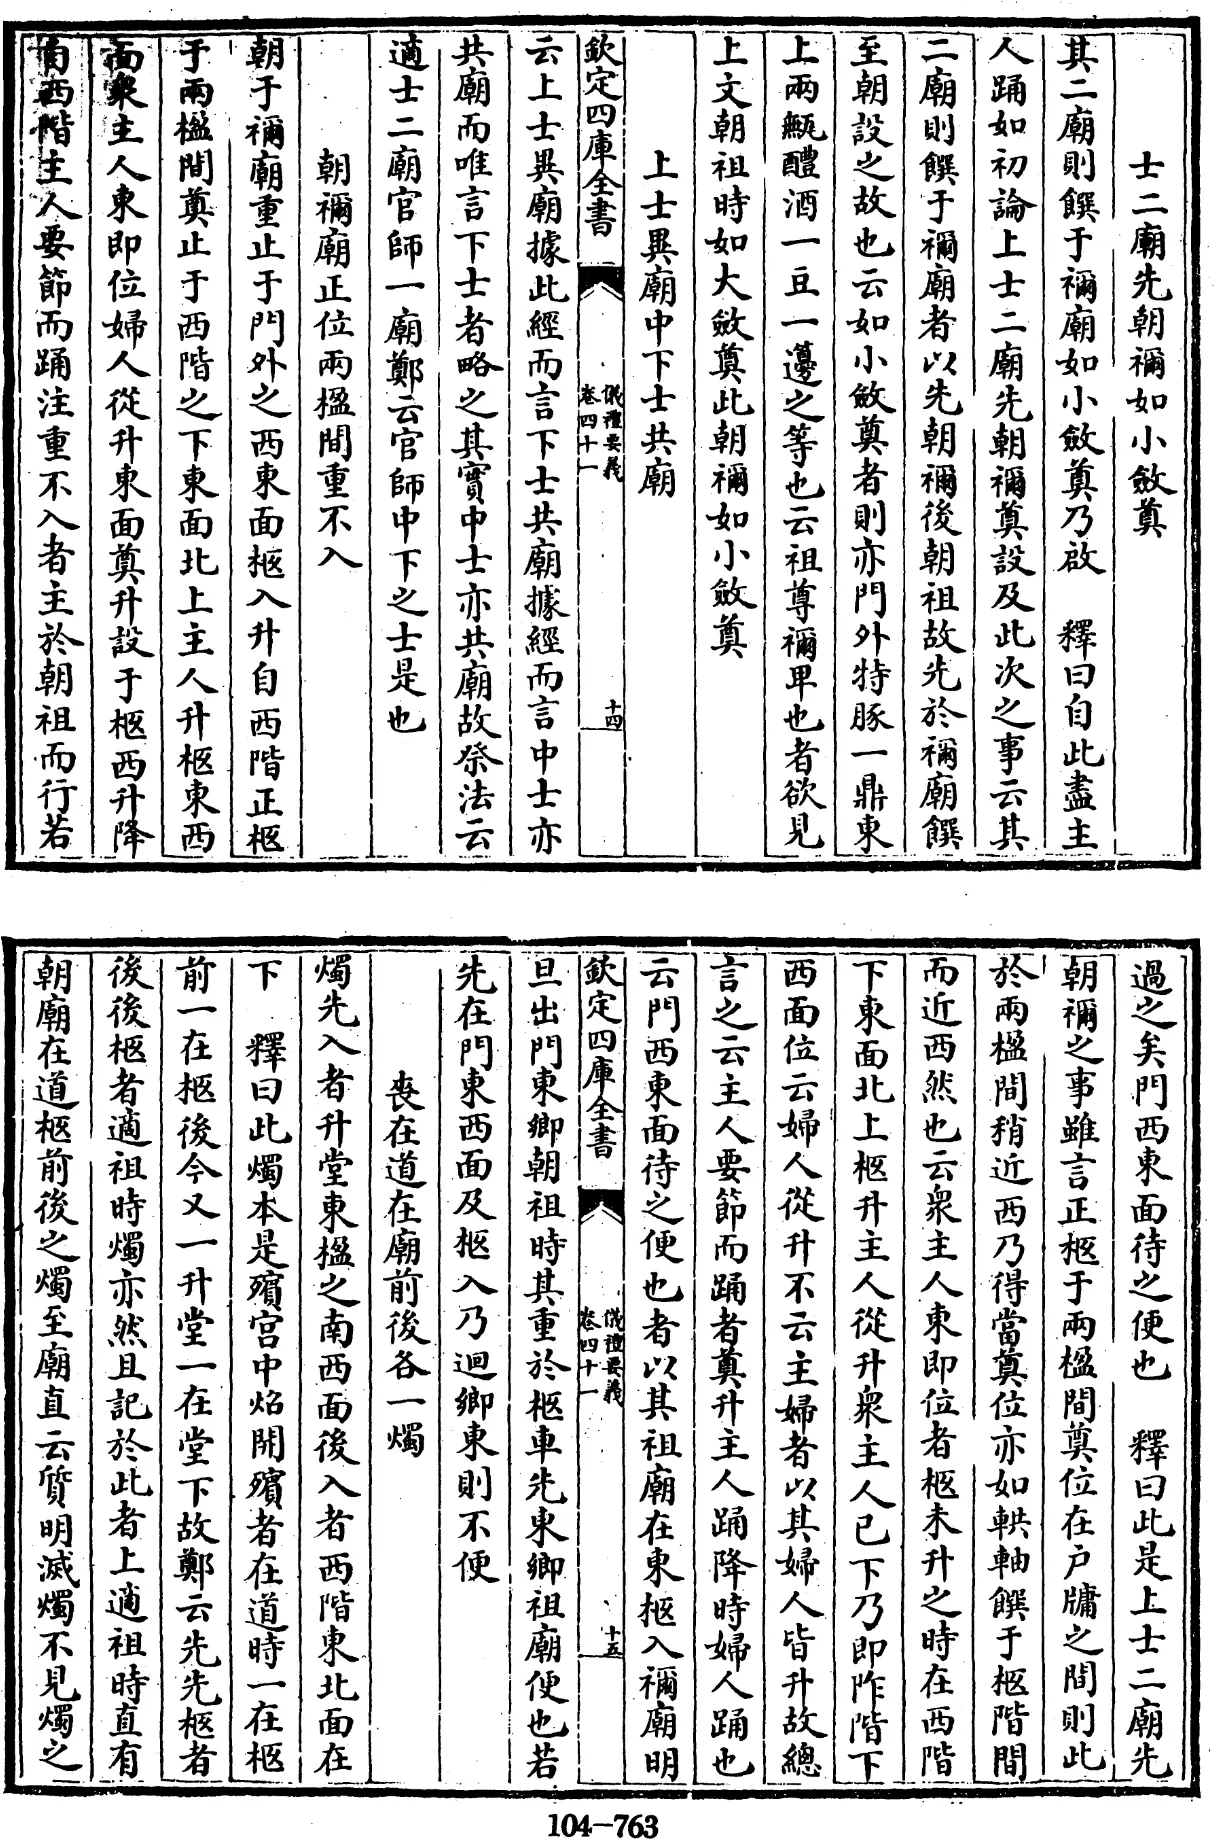 士二廟先朝禰如小斂奠
其二廟則饌于禰廟如小斂奠乃啟　釋曰自此盡主
人踊如初論上士二廟先朝禰奠設及此次之事云其
二廟則饌于禰廟者以先朝禰後朝祖故先於禰廟饌
至朝設之故也云如小斂奠者則亦門外特豚一鼎東
上兩甒醴酒一豆一籩之等也云祖尊禰卑也者欲見
上文朝祖時如大斂奠此朝禰如小斂奠
上士異廟中下士共廟
欽定四庫全書
儀禮要義
卷四十一
十四
云上士異廟據此經而言下士共廟據經而言中士亦
共廟而唯言下士者略之其實中士亦共廟故祭法云
適士二廟官師一廟鄭云官師中下之士是也
朝禰廟正位兩楹間重不入
朝于禰廟重止于門外之西東面柩入升自西階正柩
于兩楹間奠止于西階之下東面北上主人升柩東西
面衆主人東即位婦人從升東面奠升設于柩西升降
自西階主人要節而踊注重不入者主於朝祖而行若
過之矣門西東面待之便也　釋曰此是上士二廟先
朝禰之事雖言正柩于兩楹間奠位在戶牖之間則此
於兩楹間稍近西乃得當奠位亦如輁軸饌于柩階間
而近西然也云衆主人東即位者柩未升之時在西階
下東面北上柩升主人從升衆主人已下乃即阼階下
西面位云婦人從升不云主婦者以其婦人皆升故總
言之云主人要節而踊者奠升主人踊降時婦人踊也
云門西東面待之便也者以其祖廟在東柩入禰廟明
欽定四庫全書
儀禮要義
卷四十一
十五
旦出門東鄉朝祖時其重於柩車先東鄉祖廟便也若
先在門東西面及柩入乃迴鄉東則不便
喪在道在廟前後各一燭
燭先入者升堂東楹之南西面後入者西階東北面在
下　釋曰此燭本是殯宮中焰開殯者在道時一在柩
前一在柩後今又一升堂一在堂下故鄭云先先柩者
後後柩者適祖時燭亦然且記於此者上適祖時直有
朝廟在道柩前後之燭至廟直云質明滅燭不見燭之
104-763